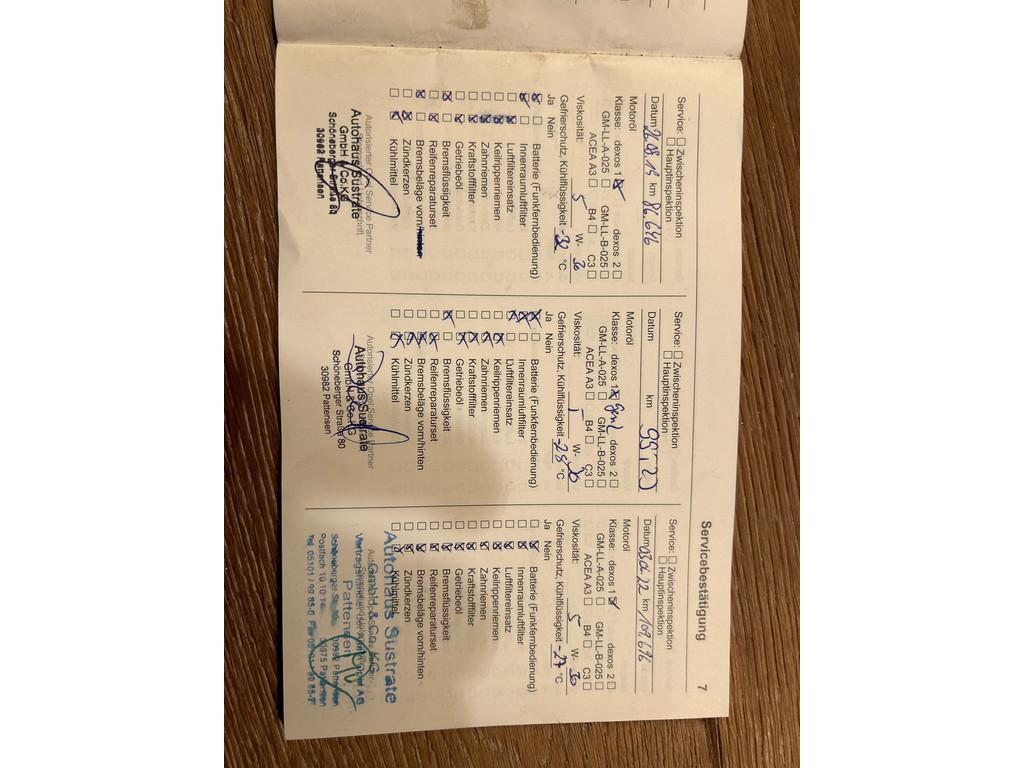 Servicebestätigung
7
Service: ☐ Zwischeninspektion
☐ Hauptinspektion
Datum 26.08.19 km 86.646
Motoröl
Klasse: dexos 1 ☒ dexos 2 ☐
GM-LL-A-025 ☐ GM-LL-B-025 ☐
ACEA A3 ☐ B4 ☐ C3 ☐
Viskosität: 5 W- 30
Gefrierschutz, Kühlflüssigkeit -32 °C
Ja Nein
☒ ☐ Batterie (Funkfernbedienung)
☒ ☐ Innenraumluftfilter
☐ ☒ Luftfiltereinsatz
☐ ☒ Keilrippenriemen
☐ ☒ Zahnriemen
☐ ☒ Kraftstofffilter
☐ ☒ Getriebeöl
☒ ☐ Bremsflüssigkeit
☐ ☒ Reifenreparaturset
☒ ☐ Bremsbeläge vorn/hinten
☐ ☒ Zündkerzen
☐ ☒ Kühlmittel
Autorisierter Opel Service Partner
Autohaus Sustrate
GmbH & Co.KG
Schöneberger Straße 80
30982 Pattensen
Service: ☐ Zwischeninspektion
☐ Hauptinspektion
Datum km
Motoröl
Klasse: dexos 1 ☒ dexos 2 ☐
GM-LL-A-025 ☐ GM-LL-B-025 ☐
ACEA A3 ☐ B4 ☐ C3 ☐
Viskosität: W- 30
Gefrierschutz, Kühlflüssigkeit -28 °C
Ja Nein
☒ ☐ Batterie (Funkfernbedienung)
☒ ☐ Innenraumluftfilter
☒ ☐ Luftfiltereinsatz
☐ ☒ Keilrippenriemen
☐ ☒ Zahnriemen
☐ ☒ Kraftstofffilter
☐ ☒ Getriebeöl
☒ ☐ Bremsflüssigkeit
☐ ☒ Reifenreparaturset
☐ ☒ Bremsbeläge vorn/hinten
☐ ☒ Zündkerzen
☐ ☒ Kühlmittel
Autorisierter Opel Service Partner
Autohaus Sustrate
GmbH & Co.KG
Schöneberger Straße 80
30982 Pattensen
Service: ☐ Zwischeninspektion
☐ Hauptinspektion
Datum 03.04.22 km 109.696
Motoröl
Klasse: dexos 1 ☒ dexos 2 ☐
GM-LL-A-025 ☐ GM-LL-B-025 ☐
ACEA A3 ☐ B4 ☐ C3 ☐
Viskosität: 5 W- 30
Gefrierschutz, Kühlflüssigkeit -27 °C
Ja Nein
☐ ☒ Batterie (Funkfernbedienung)
☐ ☒ Innenraumluftfilter
☐ ☒ Luftfiltereinsatz
☐ ☒ Keilrippenriemen
☐ ☒ Zahnriemen
☐ ☒ Kraftstofffilter
☐ ☒ Getriebeöl
☐ ☒ Bremsflüssigkeit
☐ ☒ Reifenreparaturset
☐ ☒ Bremsbeläge vorn/hinten
☐ ☒ Zündkerzen
☐ ☒ Kühlmittel
Autohaus Sustrate
GmbH & Co. KG
Vertragshändler der Adam Opel AG
Pattensen
Schöneberger Str. 30982 Pattensen
Postfach 10 10 14 30975 Pattensen
Tel. 05101 / 99 85-0